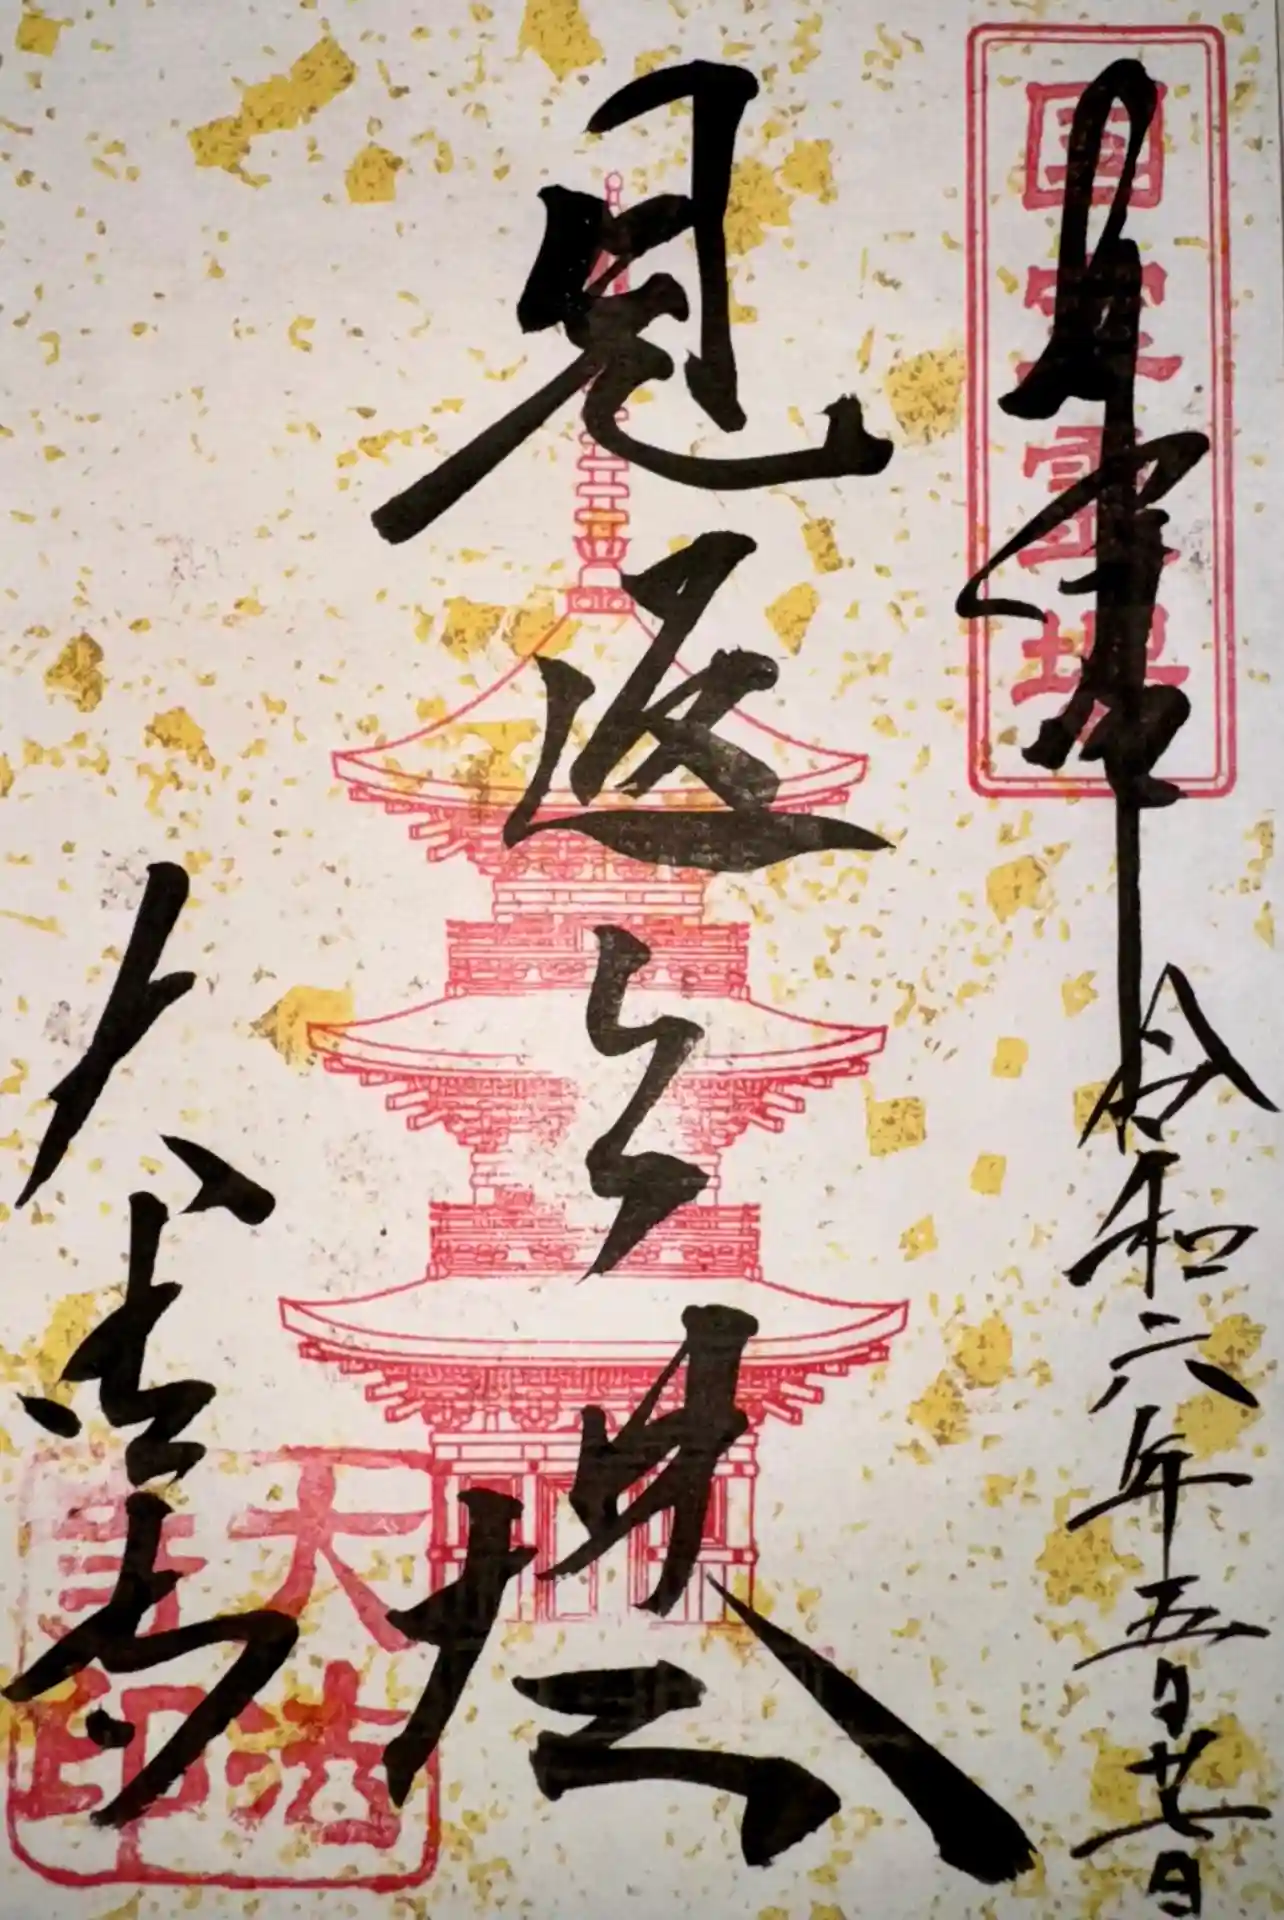 奉拝 令和六年五月廿七日
国宝霊場
見返之塔
大法寺
大法
寺印